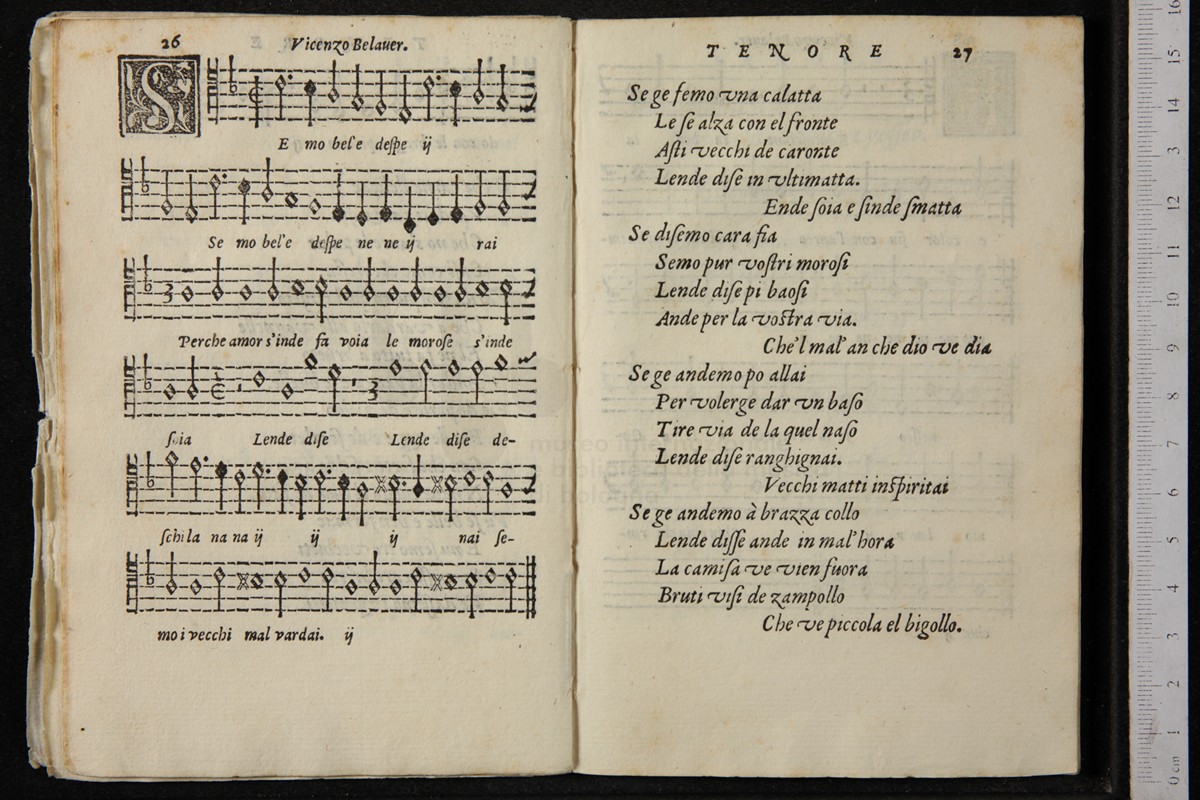 26
Vicenzo Belauer.
S
E mo bel'e deſpe ij
Se mo bel'e deſpe ne ne ij rai
Perche amor s'inde fa voia le moroſe s'inde
ſoia Lende diſe Lende diſe de-
ſchi la na na ij ij ij nai ſe-
mo i vecchi mal vardai. ij
TENORE 27
Se ge femo vna calatta
Le ſe alza con el fronte
Aſti vecchi de caronte
Lende diſe in vltimatta.
Ende ſoia e ſinde ſmatta
Se diſemo cara fia
Semo pur voſtri moroſi
Lende diſe pi baoſi
Ande per la voſtra via.
Che'l mal'an che dio ve dia
Se ge andemo po allai
Per volerge dar vn baſo
Tire via de la quel naſo
Lende diſe ranghignai.
Vecchi matti inſpiritai
Se ge andemo à brazza collo
Lende diſſe ande in mal'hora
La camiſa ve vien fuora
Bruti viſi de zampollo
Che ve piccola el bigollo.
16
15
14
3
12
11
10
9
8
7
6
5
4
3
2
1
0 cm